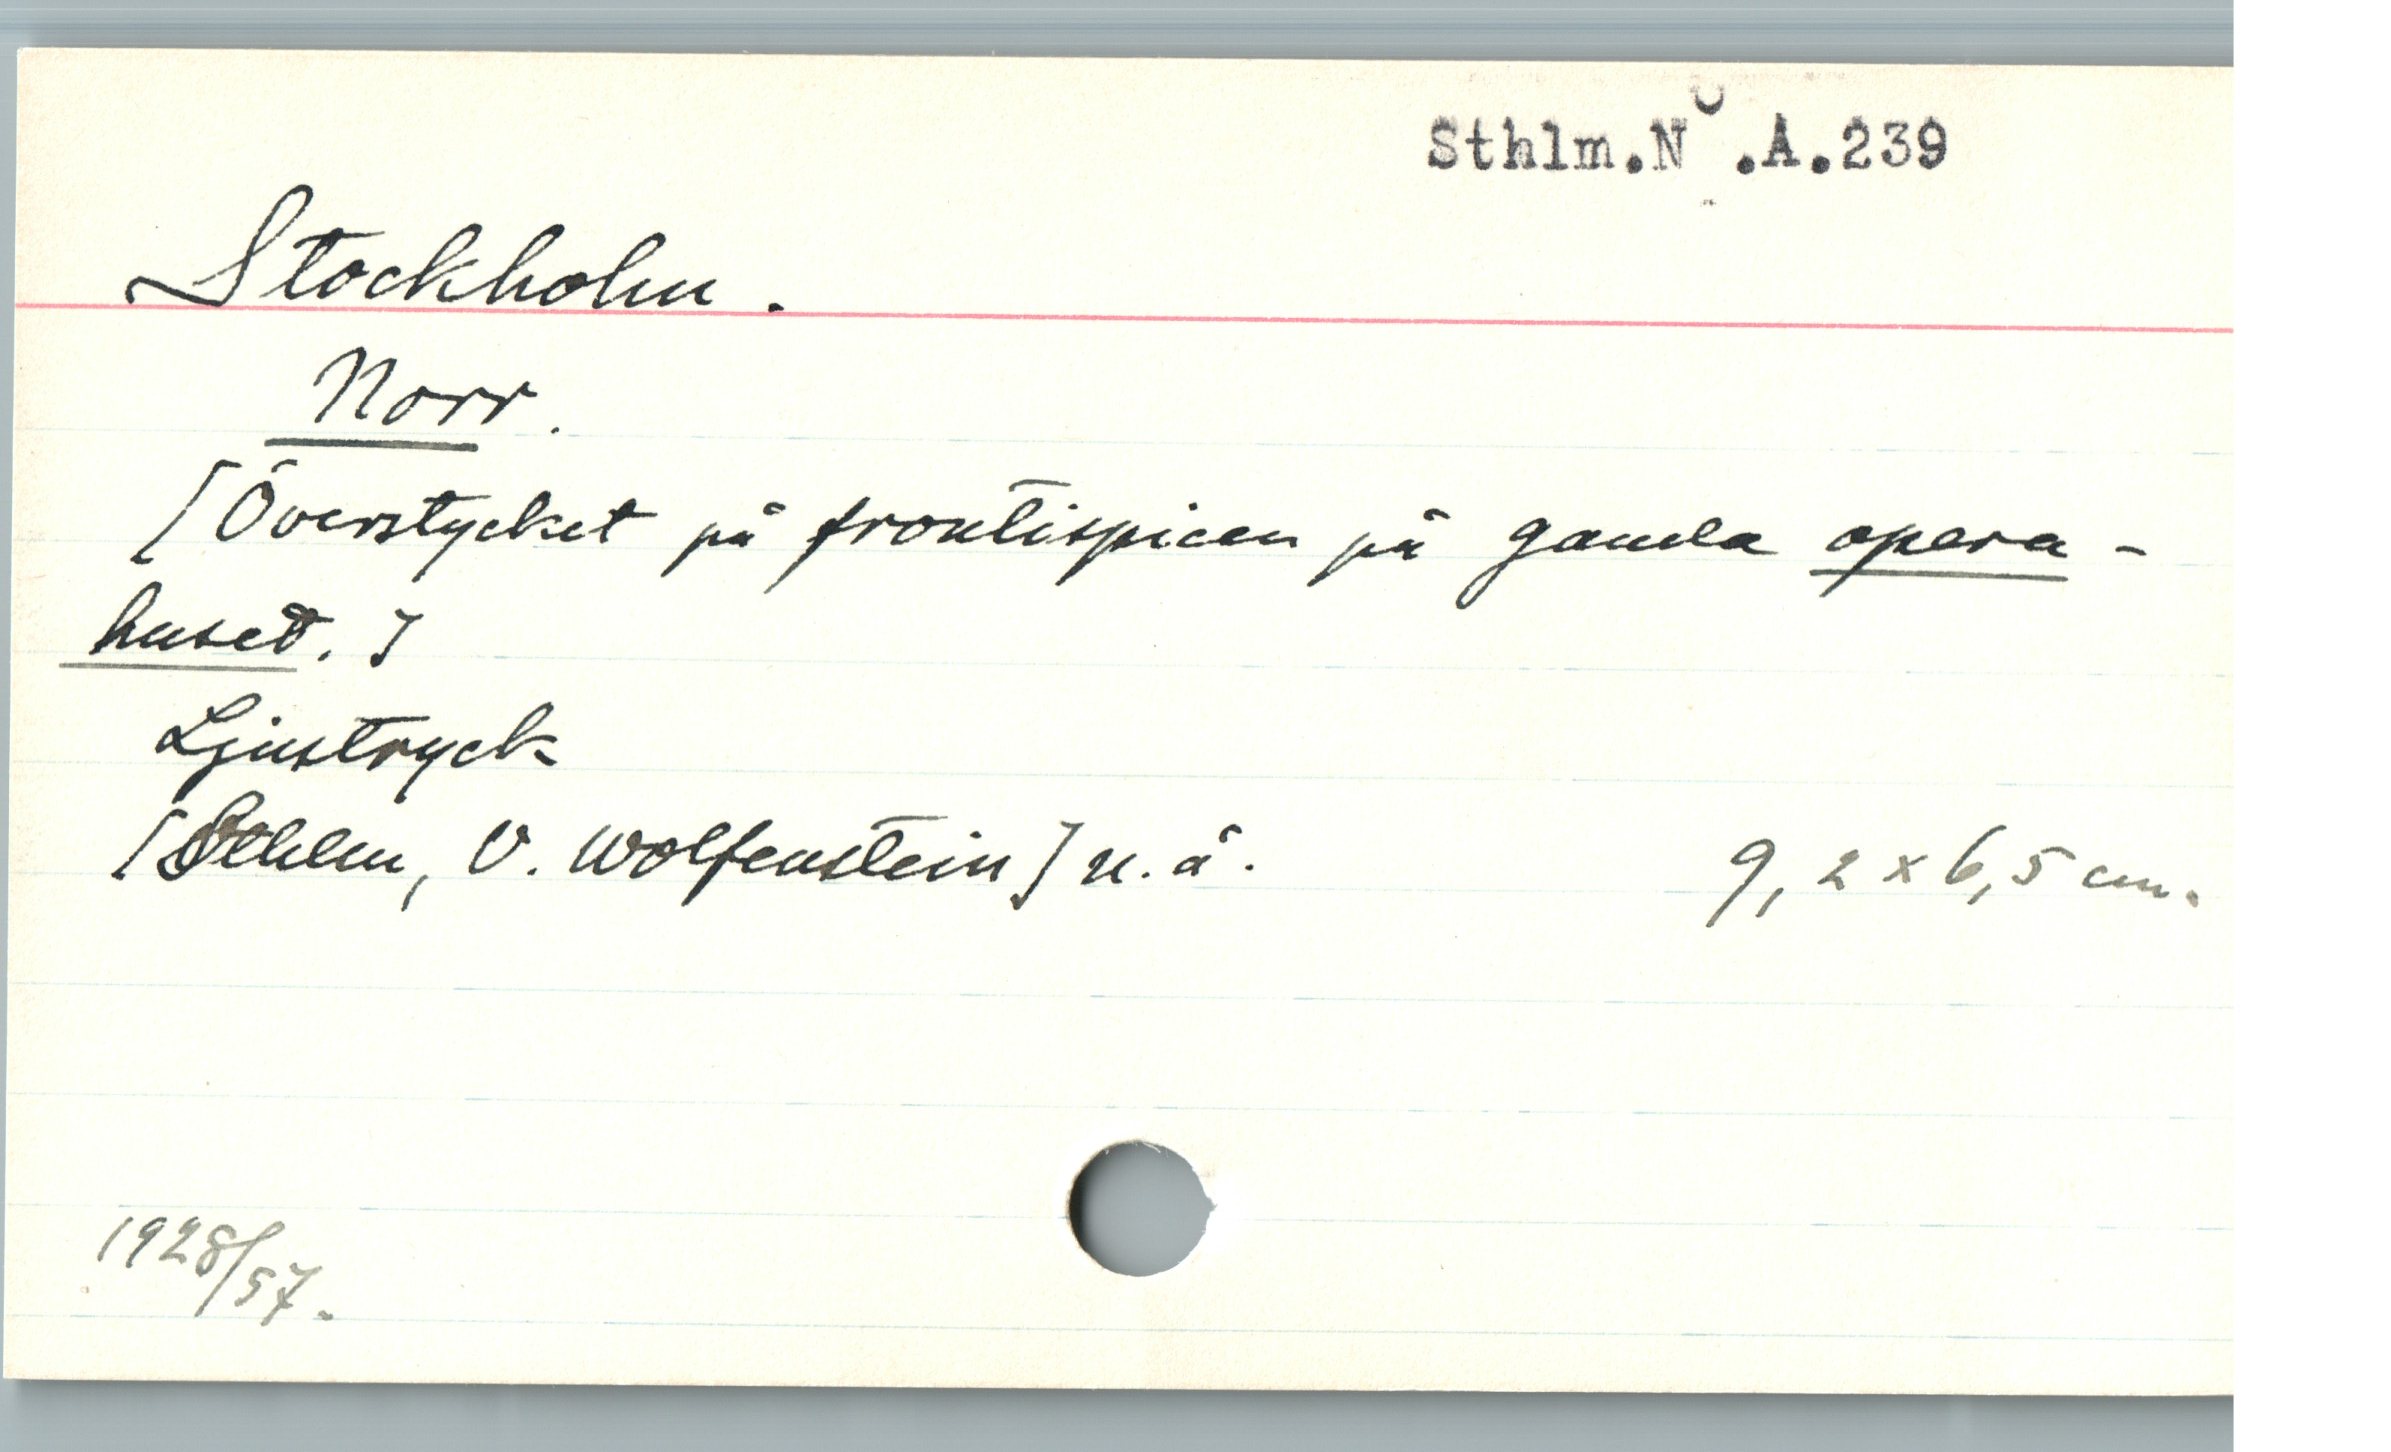 Sthlm.N .A.239
Stockholm.
Norr.
[Överstycket på frontispicen på gamla opera-
huset.]
Ljustryck
[Sthlm, V. Wolfenstein] u.å.
9,2 x 6,5 cm.
1928/57.